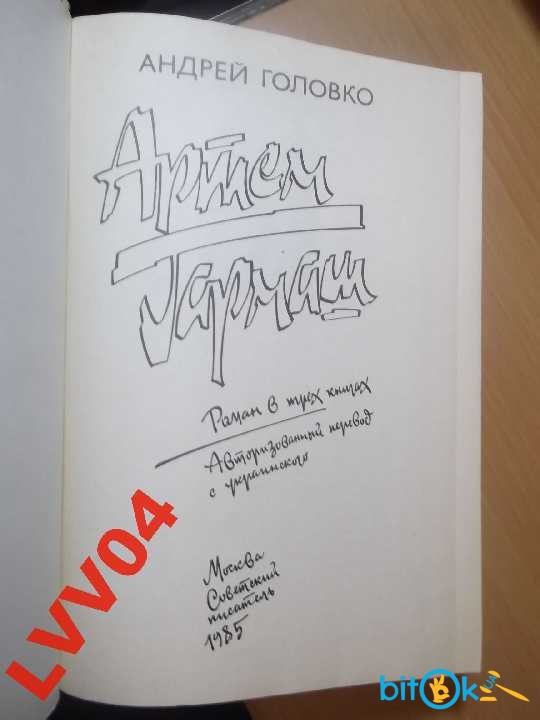 АНДРЕЙ ГОЛОВКО
Артем
Гармаш
Роман в трех книгах
Авторизованный перевод
с украинского
Москва
Советский
писатель
1985
LVV04
bitok